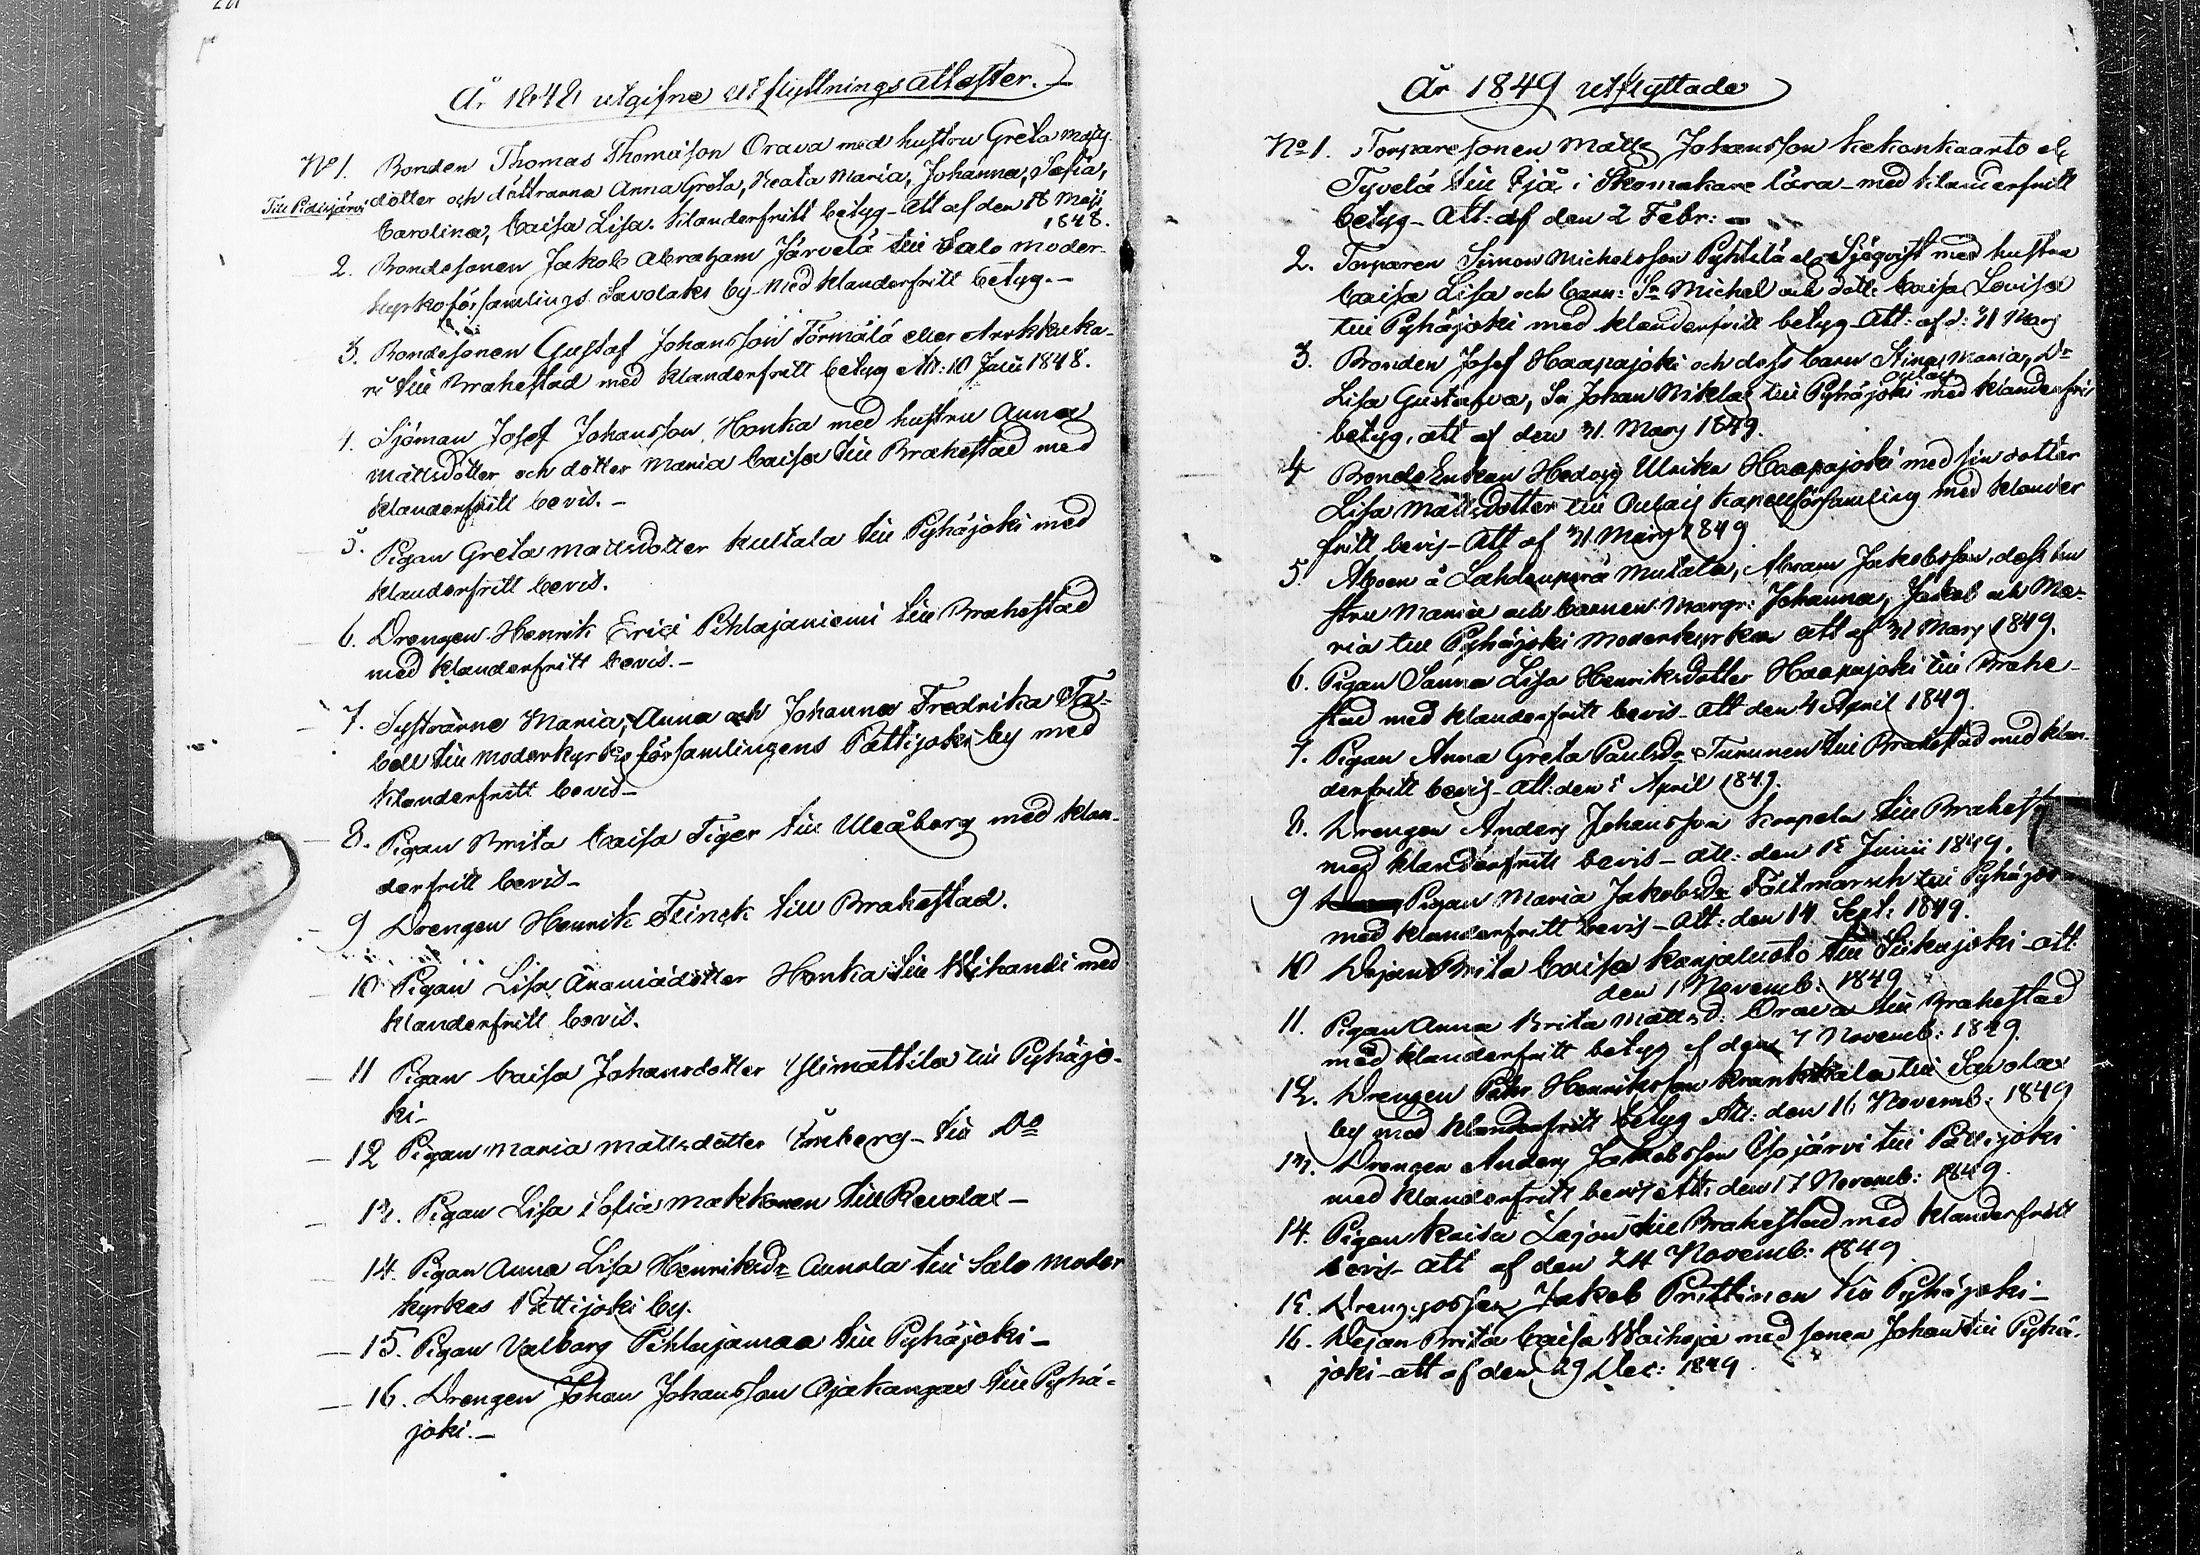 År 1848 utgifne utflyttningsattester.
No 1. Bonden Thomas Thomasson Orava med hustru Greta Matts
Till Pidisjärvi dotter och döttrarna Anna Greta, Beata Maria, Johanna, Sofia,
Carolina, Caisa Lisa. klanderfritt betyg - Att af den 18 Maji
1848.
2. Bondesonen Jakob Abraham Järvelä till Salo moder-
kyrkoförsamlings Savolaks by med klanderfritt betyg. -
3. Bondesonen Gustaf Johansson Törmälä eller Arkkuka-
ri till Brahestad med klanderfritt betyg Att: 10 Juni 1848.
4. Sjöman Josef Johansson Honka med hustru Anna
Mattsdotter och dotter Maria Caisa till Brahestad med
klanderfritt bevis. -
5. Pigan Greta Mattsdotter Kultala till Pyhäjoki med
klanderfritt bevis.
6. Drengen Henrik Erici Pihlajaniemi till Brahestad
med klanderfritt bevis. -
7. Systrarne Maria, Anna och Johanna Fredrika Fa-
bell till moderkyrkoförsamlingens Pattijoki by med
klanderfritt bevis -
8. Pigan Brita Caisa Tiger till Uleåborg med klan-
derfritt bevis -
9 Drengen Henrik Flinck till Brahestad.
10 Pigan Lisa Ananiädotter Honka till Wihandi med
klanderfritt bevis.
11 Pigan Caisa Johansdotter Ylimattila till Pyhäjo-
ki -
12 Pigan Maria Mattsdotter Enberg - till Do
13. Pigan Lisa Sofia Makkonen till Revolax -
14. Pigan Anna Lisa Henriksdr Annola till Salo moder
kyrkas Pattijoki by.
15. Pigan Valborg Pihlajamaa till Pyhäjoki -
16. Drengen Johan Johansson Ojakangas till Pyhä-
joki. -
År 1849 utflyttade
No 1. Torparesonen Matts Johansson Kekonkaarto el.
Tyvelä till i Skomakare lära - med klanderfritt
betyg - Att: af den 2 Febr: -
2. Torparen Simon Michelsson Pyhtilä el. Sjöqvist med hustru
Caisa Lisa och barn: Sn Michel och dott: Caisa Lovisa
till Pyhäjoki med klanderfritt betyg - Att: af d: 31 Mars
3. Bonden Josef Haapajoki och dess barn Stina Maria, Dr
Lisa Gustafva, Sn Johan Niklas till Pyhäjoki Oulais med klanderfri
betyg, att af den 31 Mars 1849.
4 BondeEnkan Hedvig Ulrika Haapajoki med sin dotter
Lisa Mattsdotter till Oulais Kapellförsamling med klander
fritt bevis - Att af 31 Mars 1849
5. Aboen å Lahdenperä Mutala, Abram Jakobsson, dess hu
stru Maria och barnen: Margr: Johanna, Jakob och Ma-
ria till Pyhäjoki Moderkyrka att af 31 Mars 1849.
6. Pigan Sanna Lisa Henriksdotter Haapajoki till Brahe-
stad med klanderfritt bevis - att den 4 April 1849.
7. Pigan Anna Greta Paulsdr Turunen till Brahestad med klan-
derfritt bevis - att: den 5 April 1849.
8. Drengen Anders Johansson Korpela till Brahest
med klanderfritt bevis - att: den 15 Junii 1849.
9 Pigan Maria Jakobsdr Fältmarsch till Pyhäjo
med klanderfritt bevis - Att: den 14 Sept: 1849.
10 Dejan Brita Caisa Karjaluoto till Siikajoki - att:
den 1 Novemb: 1849
11. Pigan Anna Brita Mattsd: Orava till Brahestad
med klanderfritt betyg af den 7 Novemb: 1849.
12. Drengen Pehr Henriksson Krankkala till Savolax
by med klanderfritt betyg Att: den 16 Novemb: 1849
13. Drengen Anders Jakobsson Ysojärvi till Pattijoki
med klanderfritt bevis Att: den 17 Novemb: 1849.
14. Pigan Kaisa Lajon till Brahestad med klanderfritt
bevis - att af den 24 Novemb: 1849.
15. Drenggossen Jakob Prittinen till Pyhäjoki -
16. Dejan Brita Caisa Waihoja med sonen Johan till Pyhä-
joki - att af den 29 Dec: 1849